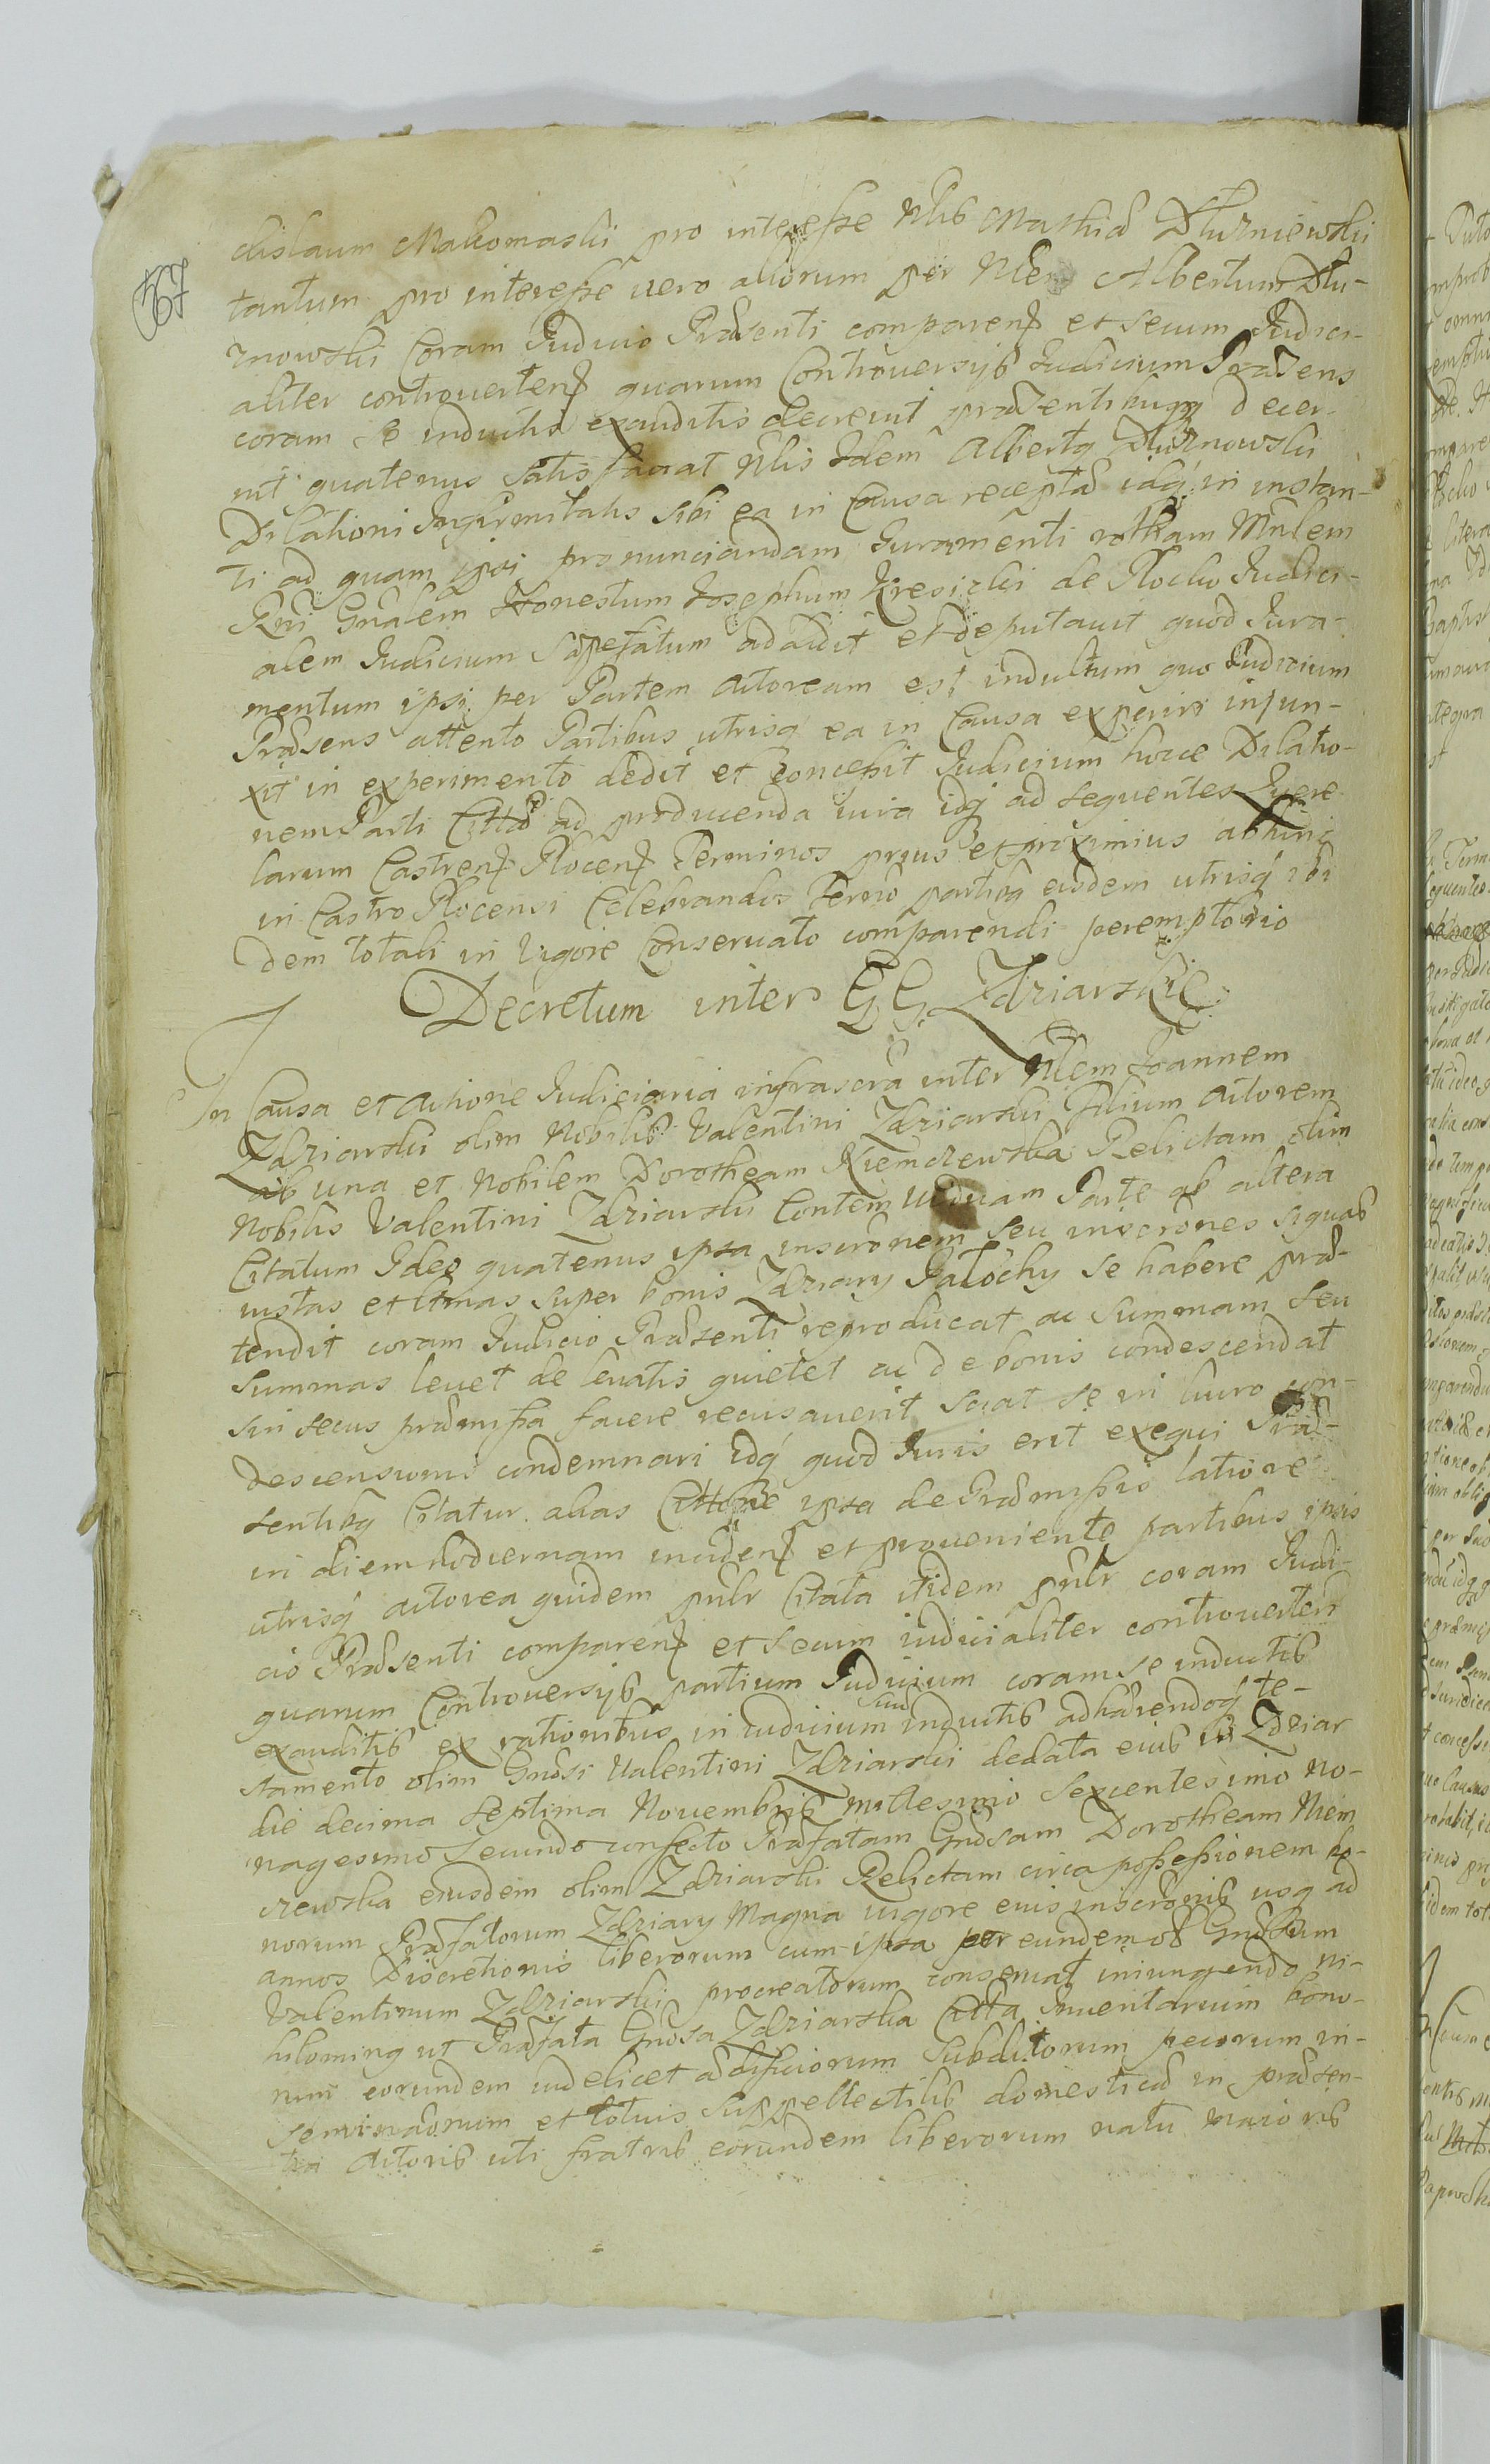 367
dislaum Makomaski pro interesse Nlis Mathiæ Dłuzniewski
tantum pro interesse vero aliorum per Nlem Albertum Dłu-
znowski Coram Iudicio Præsenti comparen et secum Iudici-
aliter controverten quarum Controversijs Iudicium Præsens
coram se inductis exauditis decrevit præsentibusq decer-
nit quatenus satisfaciat Nlis Idem Albertq Dłuznowski
Dilationi Infirmitatis sibi ea in Causa receptæ idq in instan-
ti ad quam ipsi pronunciandam Iuramenti rotham Mnlem
Rni Gnalem Honestum Iosephum Kresicki de Plocko Iudici-
alem Iudicium Sæpefatum addidit et deputavit quod Iura-
mentum ipsi per Partem Actoream est indultum quo Iudicium
Præsens attento Partibus utrisq ea in Causa experiri injun-
xit in experimento dedit et concessit Iudicium hocce Dilatio-
nem Parti Cittæ ad producenda iura idq ad sequentes Quere-
larum Castren Plocen Terminos prius et proximius abhinc
in Castro Plocensi Celebrandos Termo partibq eisdem utrisq ibi
dem totali in Vigore Conservato comparendi peremptorio
Decretum inter GG Zdziarskie
In Causa et Actione Iudiciaria infrascra inter Nlem Ioannem
Zdziarski olim Nobilis Valentini Zdziarski filium Actorem
ab una et Nobilem Dorotheam Niemczewska Relictam olim
Nobilis Valentini Zdziarski Contem Viduam Parte ab altera
Citatum Ideo quatenus ipsa inscronem seu inscrones siquas
iustas et ltmas super bonis Zdziary Pałochy se habere præ-
tendit coram Iudicio Præsenti reproducat ac summam seu
summas levet de levatis quietet ac de bonis condescendat
sin secus præmissa facere recusaverit sciat se in lucro con-
descensionis condemnari idq quod Iuris erit exequi Præ-
sentibq Citatur alias Cittone ipsa de Præmissis latiore
in diem hodiernam inciden et proveniente partibus ipsis
utrisq actorea quidem pnlr Citata itidem pnlr coram Iudi-
cio Præsenti comparen et secum iudicialiter controverten
quarum Controversijs partium Iudicium coram se inductis
exauditis ex rationibus in iudicium suum inductis adhærendoq te-
stamento olim Gnosi Valentini Zdziarski de data eius in Zdziar
die decima septima Novembris millesimo sexcentesimo no-
nagesimo secundo confecto Præfatam Gnosam Dorotheam Niem
czewska eiusdem olim Zdziarski Relictam circa possessionem bo-
norum Præfatorum Zdziary Magna vigore eius inscronis usq ad
annos Discretionis liberorum cum ipsa per eundem ol Gnosum
Valentinum Zdziarski procreatorum conservat iniungendo ni-
hilominq ut Præfata Gnosa Zdziarska Citta Inventarium bono-
rum eorundem videlicet ædificiorum Subditorum pecorum in-
seminaorum et totius suppellectilis domesticæ in præsen-
tia Actoris uti fratris eorundem liberorum natu maioris